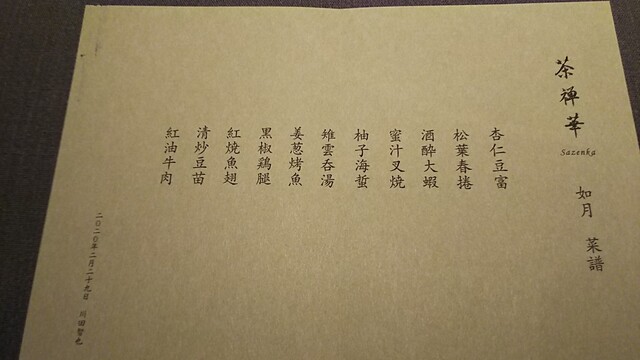 茶禅華
Sazenka
如月 菜譜
杏仁豆富
松葉春捲
酒酔大蝦
蜜汁叉焼
柚子海蜇
雉雲呑湯
姜葱烤魚
黒椒鶏腿
紅焼魚翅
清炒豆苗
紅油牛肉
二〇二〇年二月二十九日 川田智也